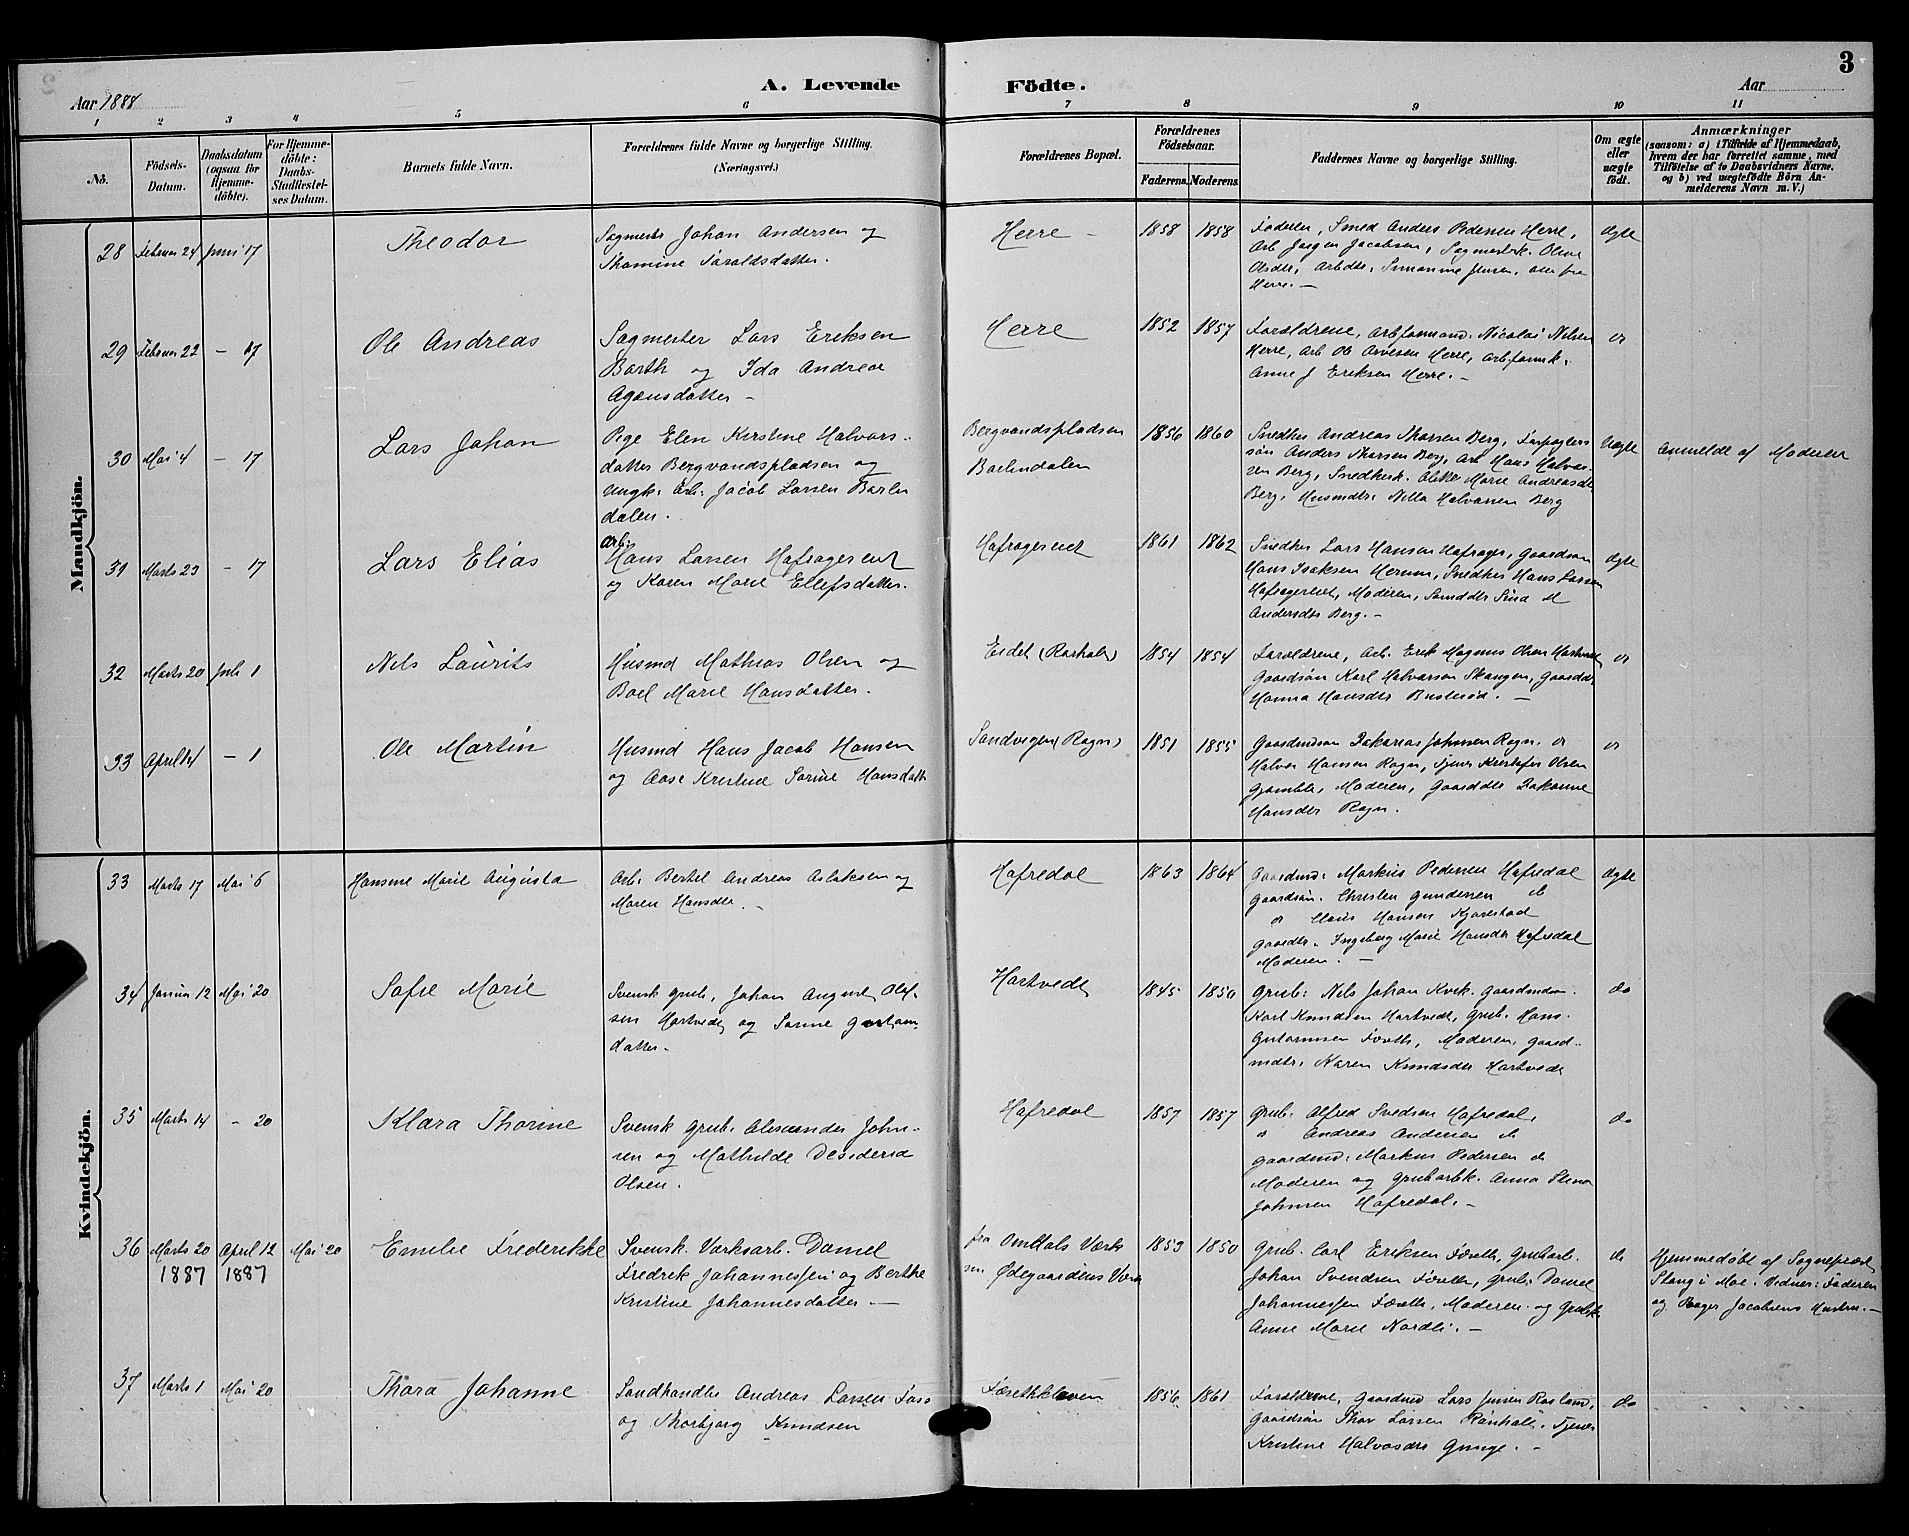 3
Aar 1888
A. Levende
Födte.
Aar
1 2 3 4 5 6 7 8 9 10 11
No.
Födsels-Datum.
Daabsdatum (ogsaa for Hjemme-döbte).
For Hjemme-döbte: Daabs-Stadfæstel-ses Datum.
Barnets fulde Navn.
Forældrenes fulde Navne og borgerlige Stilling.
(Næringsvei.)
Forældrenes Bopæl.
Forældrenes Födselsaar.
Faderens. Moderens.
Faddernes Navne og borgerlige Stilling.
Om ægte eller uægte födt.
Anmærkninger
(saasom: a) i Tilfælde af Hjemmedaab,
hvem der har forrettet samme, med
Tilföielse af to Daabsvidners Navne,
og b) ved uægtefödte Börn An-
melderens Navn m. V.)
Mandkjön.
28 Februar 24 Juni 17
Theodor
Sagmester Johan Andersen og
Thomine Taraldsdatter.
Herre -
1858 1858
Faderen, Smed Anders Pedersen Herre,
Arb Jørgen Jacobsen, Sagmesterk. Oline
Olsdtr, Arbdtr. Simonine Jensen, alle fra
Herre. -
ægte
29 Februar 22 - 17
Ole Andreas
Sagmester Lars Eriksen
Barth og Ida Andrea
Agensdatter -
Herre
1852 1857
Forældrene, Arbformand. Nicolai Nilsen
Herre, Arb Ole Arvesen Herre, Arbformk.
Anne J Eriksen Herre. -
30 Mai 4 - 17
Lars Johan
Pige Elen Kirstine Halvors-
datter Bergvandspladsen og
Ungk. Arb. Jacob Larsen
dalen.
Bergvandspladsen
1856 1860
Snedker Andreas Thorsen Berg,
søn Anders Thorsen Berg, Arb Hans Halvor-
sen Berg, Snedkerk. Marie Andreasdtr
Berg, Husmdtr. Nilla Halvorsen Berg
Uægte
Anmeldt af Moderen
31 Marts 23 - 17
Lars Elias
Arb:
Hans Larsen Hafrageriet
og Karen Marie Ellefsdatter.
Hafrageriet
1861 1862
Snedker Lars Hansen Hafrager, Gaardsøn
Hans Isaksen Herum, Snedker Hans Larsen
Hafrageriet, Moderen,
Andersdtr Berg. -
ægte
32 Marts 20 Juli 1
Nils Laurits
Husmd Mathias Olsen og
Boel Marie Hansdatter.
Eidet
1854 1854
Forældrene, Arb. Erik Magnus Olsen
Gaardsøn Karl Halvorsen Skougen, Gaarddtr
Hanna Hansdtr -
33 April 14 - 1
Ole Martin
Husmd Hans Jacob Hansen
og Aase Kristine Sørine Hansdatter
Sandvigen (Rogn)
1851 1855
Gaardmdsøn Zakarias Johnsen Rogn,
Halvor Hansen Rogn, Tjener Kristofer Olsen
Gjømble, Moderen, Gaarddtr
Hansdtr Rogn.
Kvindekjön.
33 Marts 17 Mai 6
Hansine Marie Augusta
Arb. Bertel Andreas Aslaksen og
Maren Hansdtr. -
Hafredal
1863 1864
Gaardmd: Markus Pedersen Hafredal
Gaardsøn. Christen Gundersen
Claus Hansen Kjørestad
Gaarddtr. Ingeborg Marie Hansdtr Hafredal
Moderen. -
ægte
34 12 Mai 20
Sofie Marie
Svensk Grub. Johan August Olef-
sen Hartvedt og
datter.
Hartvedt
1845 1850
Grub: Nils Johan Kvik.
Karl Knudsen Hartvedt, Grub. Hans
Moderen, Gaard-
mdtr. Karen Knudsdtr Hartvedt
do
35 Marts 14 - 20
Klara Thorine
Svensk Grub. Alexander John-
sen og Mathilde Desideria
Olsen.
Hafredal
1857 1857
Grub. Alfred Svedsen Hafredal.
Andreas Andersen
Gaardmd: Markus Pedersen
Moderen og Grubarbk. Anna Stina
Johnsen Hafredal. -
do
36 Marts 20 April 12 Mai 20
1887 1887
Emilie Frederikke
Svensk. Værksarb. Daniel
Fredrek Johannessen og Berthe
Kristine Johannesdatter. -
fra Omdals Værk
Ødegaardens Værk
1853 1850
Grub. Carl Eriksen Føreth, Grubarb.
Johan Svendsen Føreth, Grub. Daniel
Johannessen Føreth, Moderen og Grubk.
Anne Marie Nordli. -
do
Hjemmedøbt af Sogneprest
Stang i Moe. Vidner: Faderen
og Bager Jacobsens Hustru. -
37 Marts 1 Mai 20
Thora Johanne
Landhandler Andreas Larsen
og Thorbjørg Knudsen
1856 1861
Forældrene, Gaardmd Lars Jensen
Gaardsøn Thor Larsen Rønholt. Tjener
Kristine Halvorsdtr -
do